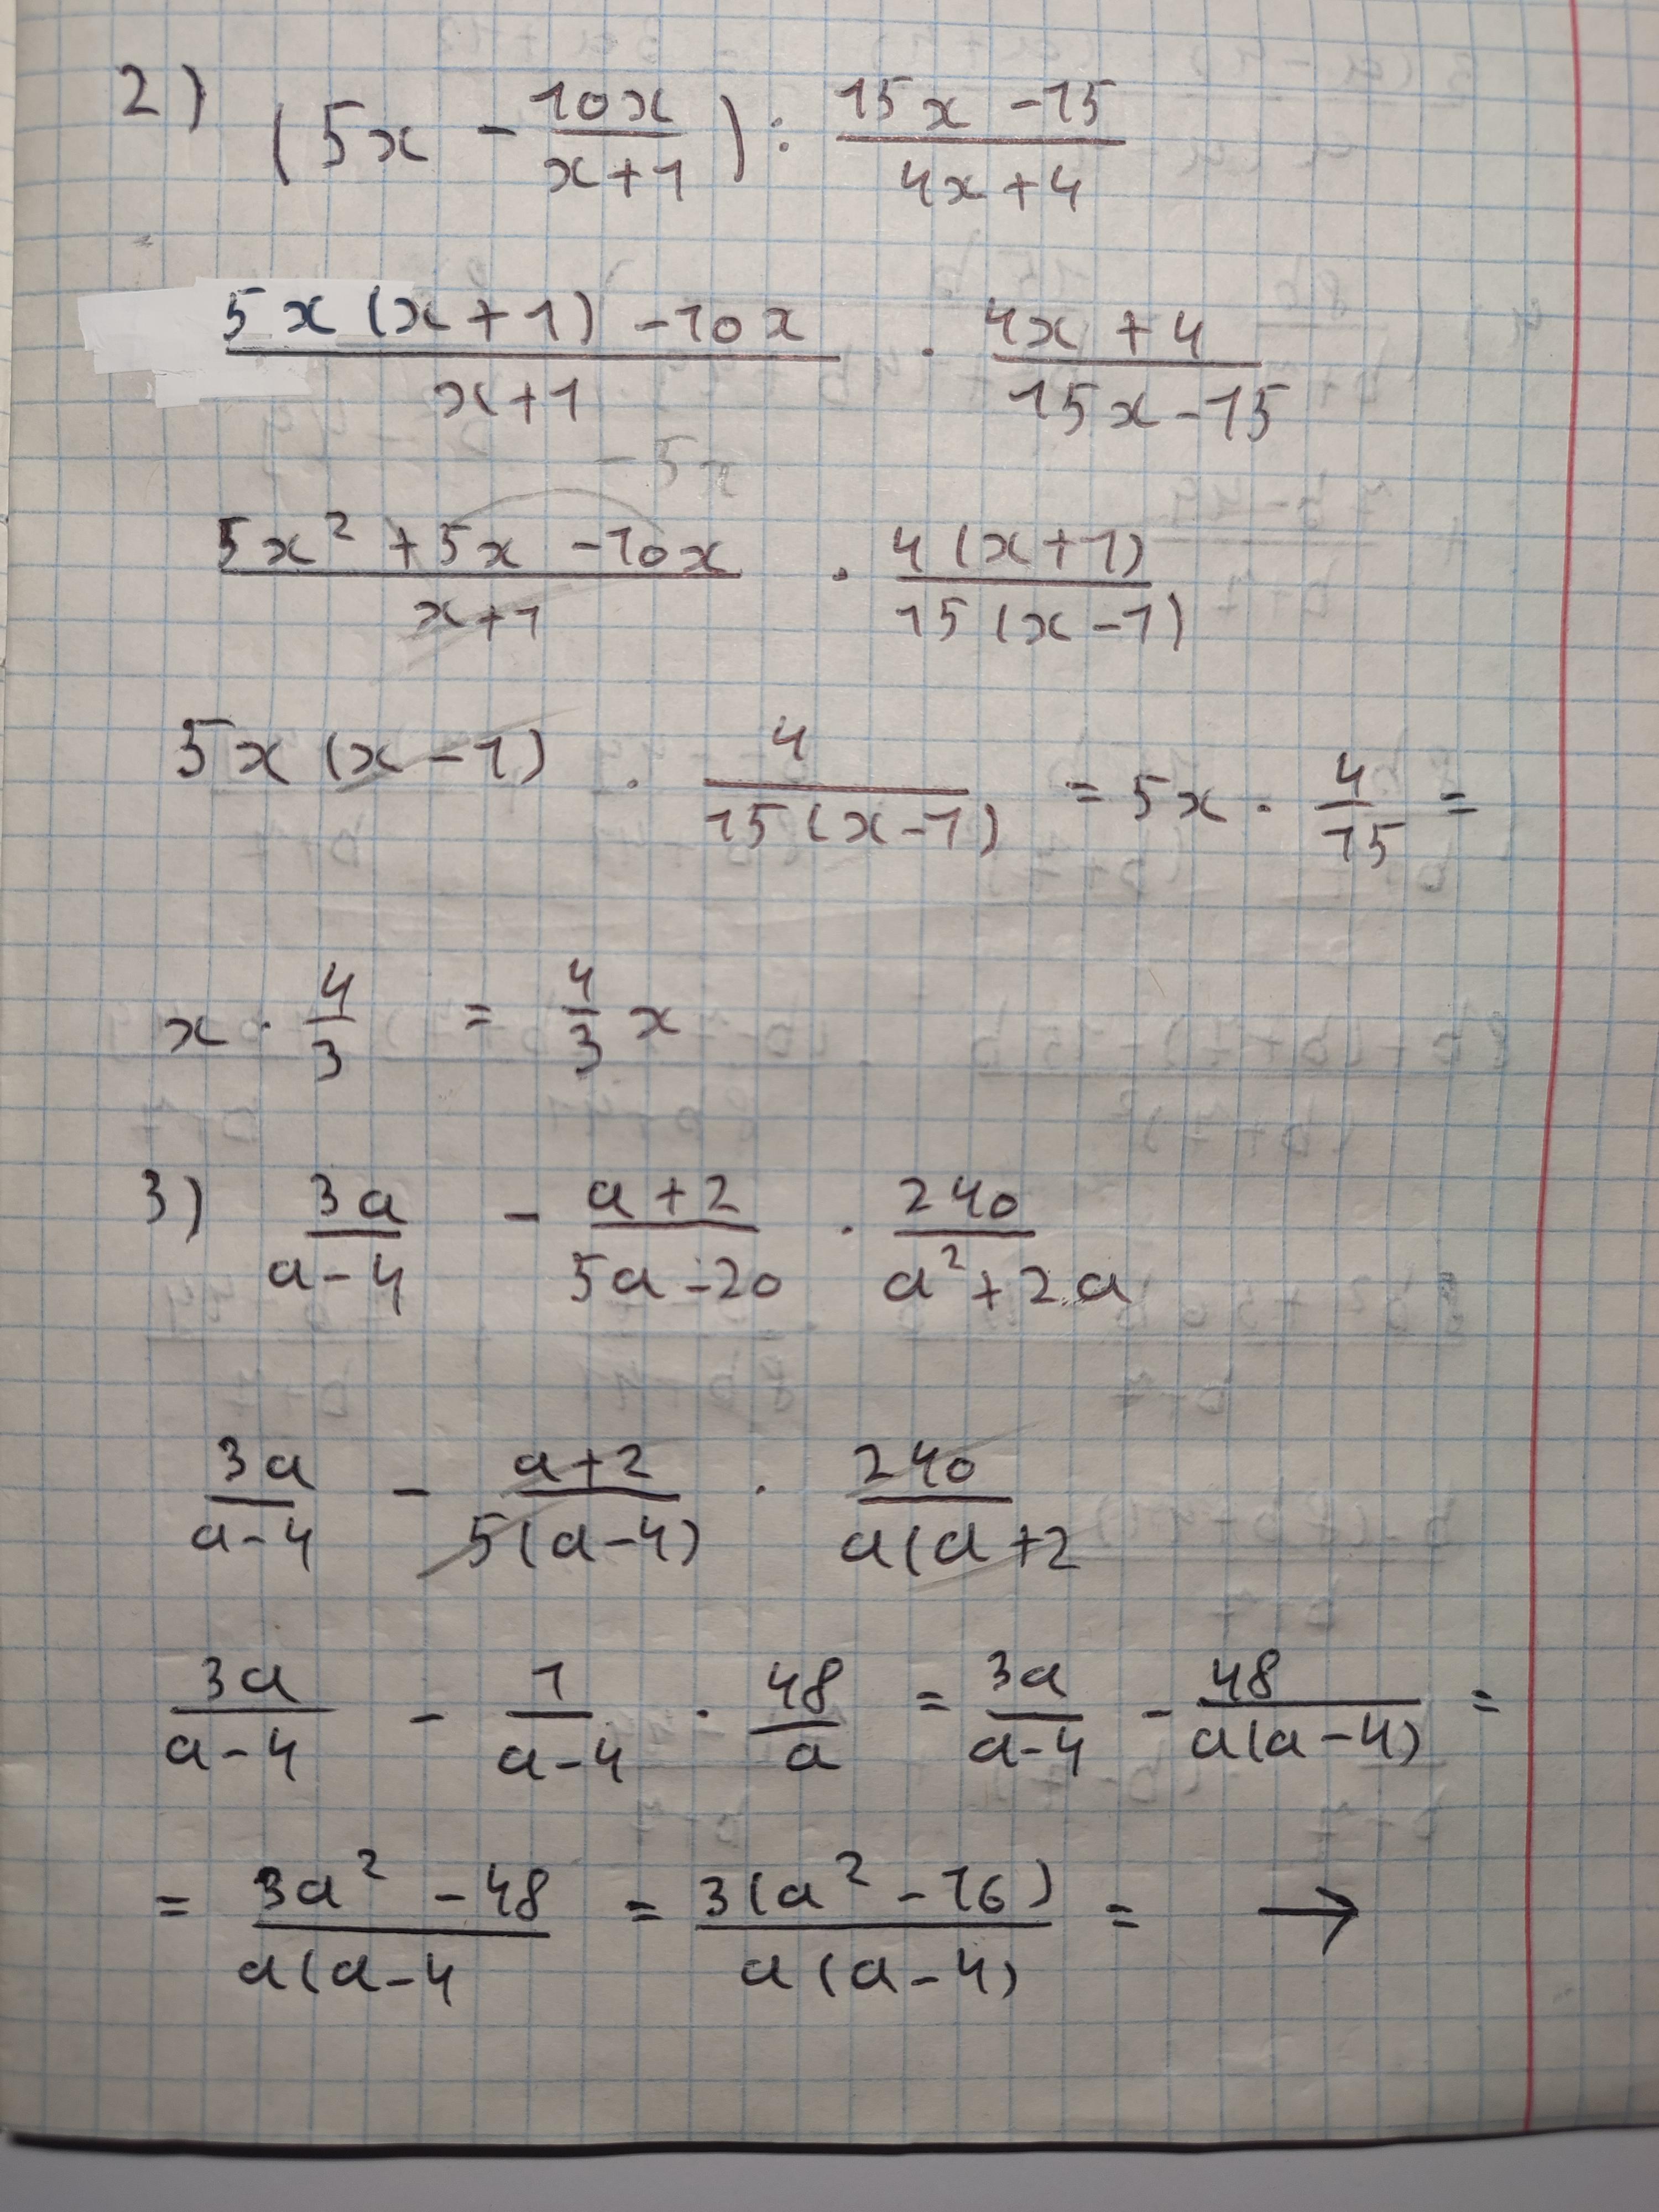 2) (5x - 10x/(x+1)) : (15x - 15)/(4x + 4)
(5x(x+1) - 10x)/(x+1) · (4x + 4)/(15x - 15)
- 5x
(5x² + 5x - 10x)/(x+1) · 4(x+1)/15(x-1)
5x(x-1) · 4/15(x-1) = 5x · 4/15 =
x · 4/3 = 4/3 x
3) 3a/(a-4) - (a+2)/(5a-20) · 240/(a²+2a)
3a/(a-4) - (a+2)/5(a-4) · 240/a(a+2
3a/(a-4) - 1/(a-4) · 48/a = 3a/(a-4) - 48/a(a-4) =
= (3a² - 48)/a(a-4 = 3(a² - 16)/a(a-4) = →